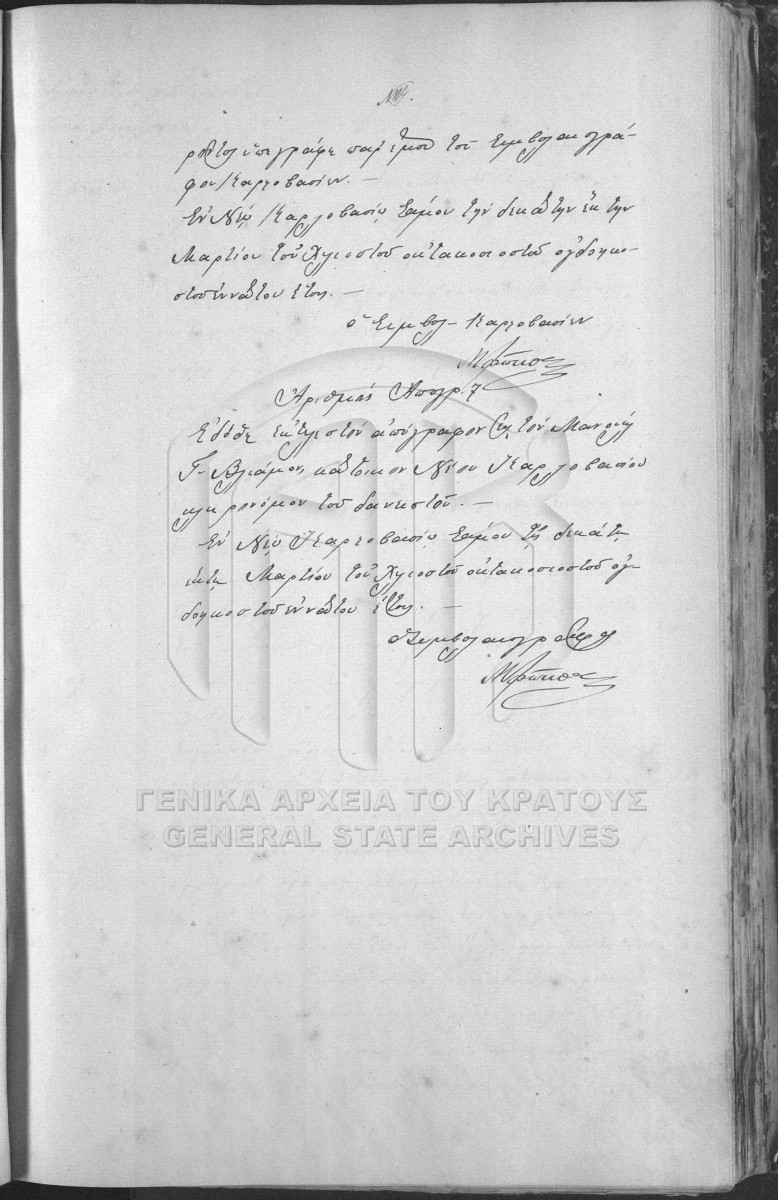 υπεγράφη παρ' εμού τού Συμβολαιογρά-
φου Καρλοβασίων. —
Εν Νέω Καρλοβασίω Σάμου την δεκάτην έκτην
Μαρτίου τού χιλιοστού οκτακοσιοστού ογδοηκο-
στού εννάτου έτους. —
ο Συμβολ- Καρλοβασίων
Αριθμός Απογρ. 7
Εδόθη εκτελεστόν απόγραφον εις τον Μανουήλ
Γ. κάτοικον Νέου Καρλοβασίου
κληρονόμον τού δανειστού. —
Εν Νέω Καρλοβασίω Σάμου τη δεκάτη
έκτη Μαρτίου τού χιλιοστού οκτακοσιοστού ογ-
δοηκοστού εννάτου έτους. —
ο Συμβολαιογράφος
ΓΕΝΙΚΑ ΑΡΧΕΙΑ ΤΟΥ ΚΡΑΤΟΥΣ
GENERAL STATE ARCHIVES